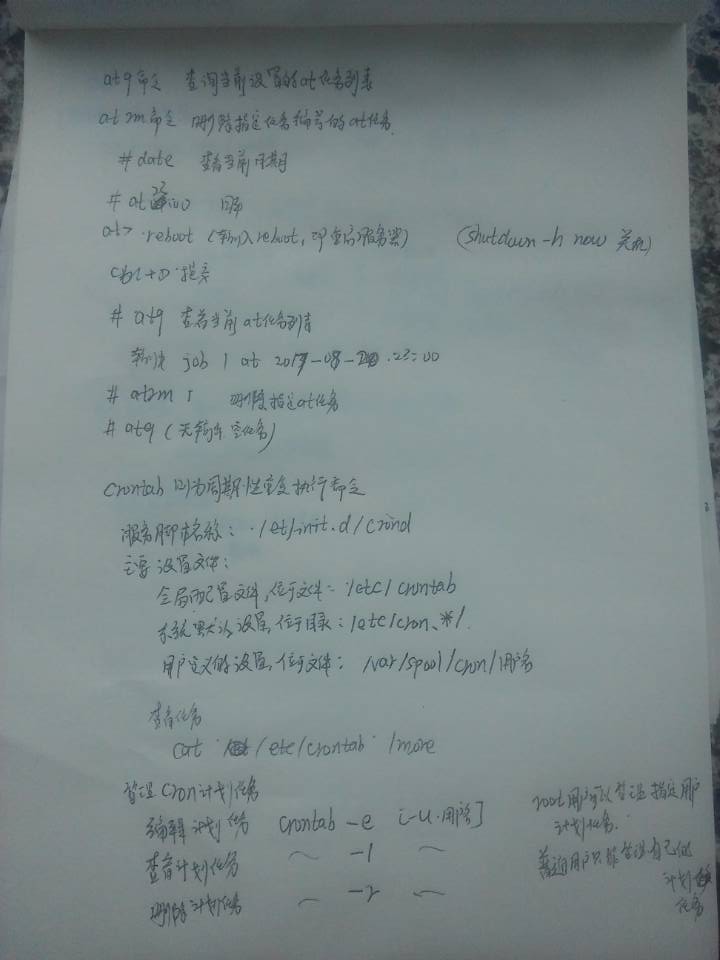 atq命令 查询当前设置的at任务列表
atrm命令 删除指定任务编号的at任务
# date 查看当前日期
# at 23:00 回车
at> reboot (输入reboot, 即重启服务器) (shutdown -h now 关机)
Ctrl+D 提交
# atq 查看当前at任务列表
输出 job 1 at 2017-08-20 23:00
# atrm 1 删除指定at任务
# atq (无输出 空任务)
crontab 以为周期性重复执行命令
服务脚本名称: /etc/init.d/crond
主要设置文件:
全局配置文件, 位于文件: /etc/crontab
系统默认设置, 位于目录: /etc/cron.*/
用户定义的设置, 位于文件: /var/spool/cron/用户名
查看任务
cat /etc/crontab |more
管理Cron计划任务
编辑计划任务 crontab -e [-u 用户名]
查看计划任务 ~ -l ~
删除计划任务 ~ -r ~
root用户可以管理指定用户
计划任务.
普通用户只能管理自己的
计划
任务